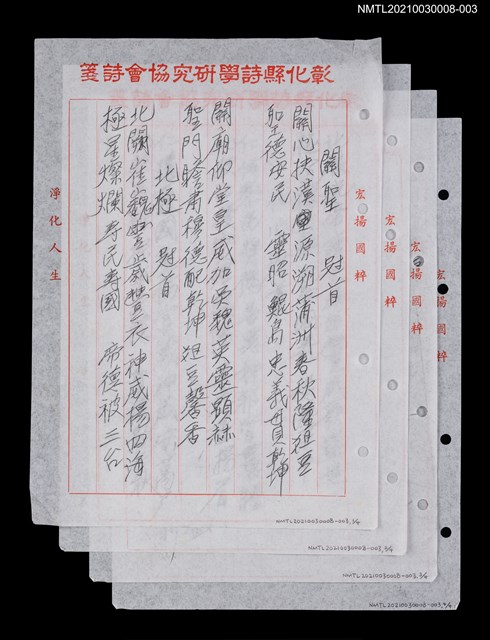 NMTL20210030008-003
彰化縣詩學研究協會詩箋
宏揚國粹
宏揚國粹
宏揚國粹
宏揚國粹
關聖 冠首
關心扶漢室源溯蒲洲春秋隆俎豆
聖德安民 靈昭鯤島忠義貫乾坤
關廟仰堂皇威加四魏英靈顯赫
聖門瞻肅穆德配乾坤俎豆馨香
北極 冠首
北闕崔巍 神威揚四海
極星燦爛壽民壽國 帝德被三台
淨化人生
NMTL20210030008-003,3/6
NMTL20210030008-003,3/6
NMTL20210030008-003,3/6